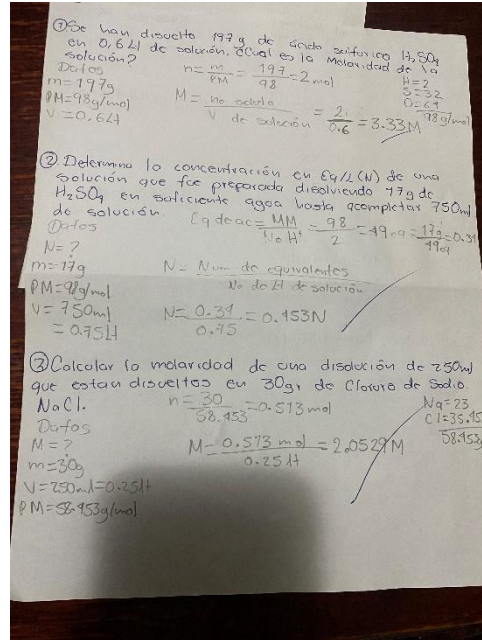 ①Se han disuelto 197 g de ácido sulfúrico H₂SO₄
en 0,6Lt de solución. ¿Cual es la Molaridad de la
solución?
Datos
m=197g
PM=98g/mol
V=0.6Lt
n=m/PM=197/98=2 mol
M=no soluto/V de solución=2/0.6=3.33M
H=2
S=32
O=64
98g/mol
② Determina la concentración en Eq/L (N) de una
solución que fue preparada disolviendo 17g de
H₂SO₄ en suficiente agua hasta acompletar 750ml
de solución.
Datos
N=?
m=17g
PM=98g/mol
V=750ml
=0.75Lt
Eq de ac=MM/No H⁺=98/2=49eq=17g/49eq=0.34
N=Num de equivalentes/No de Lt de solución
N=0.34/0.75=0.453N
③Calcular la molaridad de una disolución de 250ml
que estan disueltos en 30gr de Cloruro de Sodio.
NaCl.
Datos
M=?
m=30g
V=250ml=0.25Lt
PM=58.453g/mol
n=30/58.453=0.513mol
M=0.513 mol/0.25Lt=2.0529M
Na=23
Cl=35.45
58.453